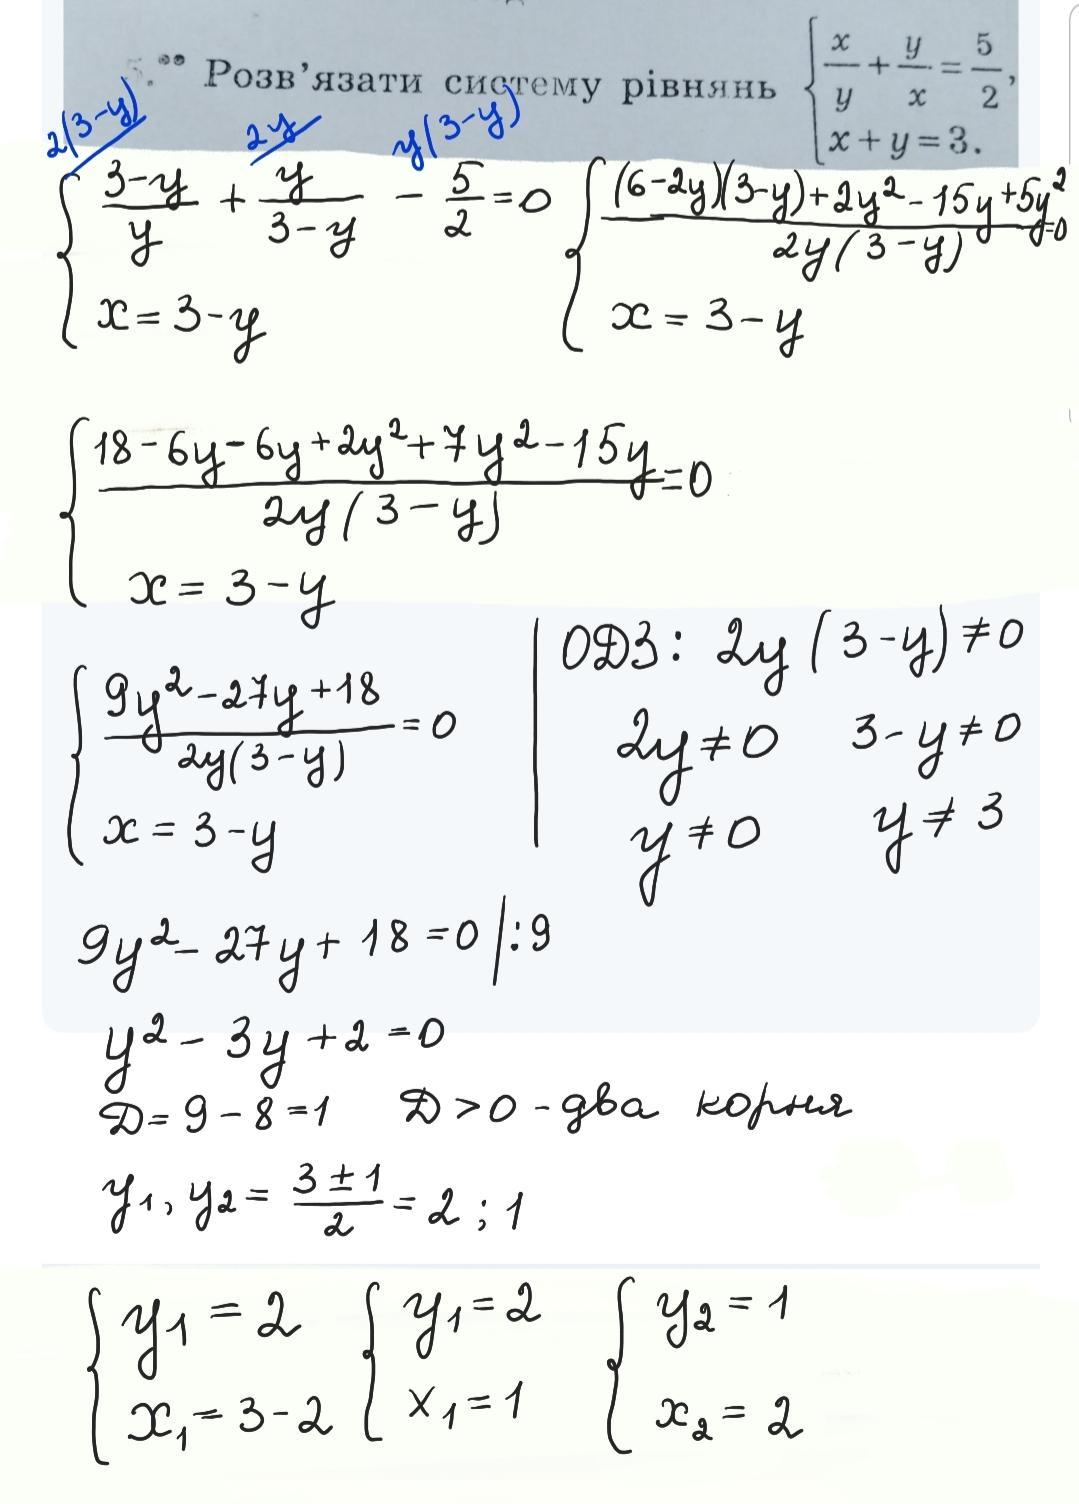 5.•• Розв'язати систему рівнянь { x/y + y/x = 5/2,
x + y = 3.
2(3-y) 2y y(3-y)
{ (3-y)/y + y/(3-y) - 5/2 = 0 { ((6-2y)(3-y)+2y²-15y+5y²)/(2y(3-y)) = 0
x = 3-y x = 3-y
{ (18-6y-6y+2y²+7y²-15y)/(2y(3-y)) = 0
x = 3-y
{ (9y²-27y+18)/(2y(3-y)) = 0
x = 3-y
ОДЗ: 2y(3-y) ≠ 0
2y ≠ 0 3-y ≠ 0
y ≠ 0 y ≠ 3
9y² - 27y + 18 = 0 |:9
y² - 3y + 2 = 0
Д = 9 - 8 = 1 Д > 0 - два корня
y₁, y₂ = (3 ± 1)/2 = 2 ; 1
{ y₁ = 2 { y₁ = 2 { y₂ = 1
x₁ = 3-2 x₁ = 1 x₂ = 2